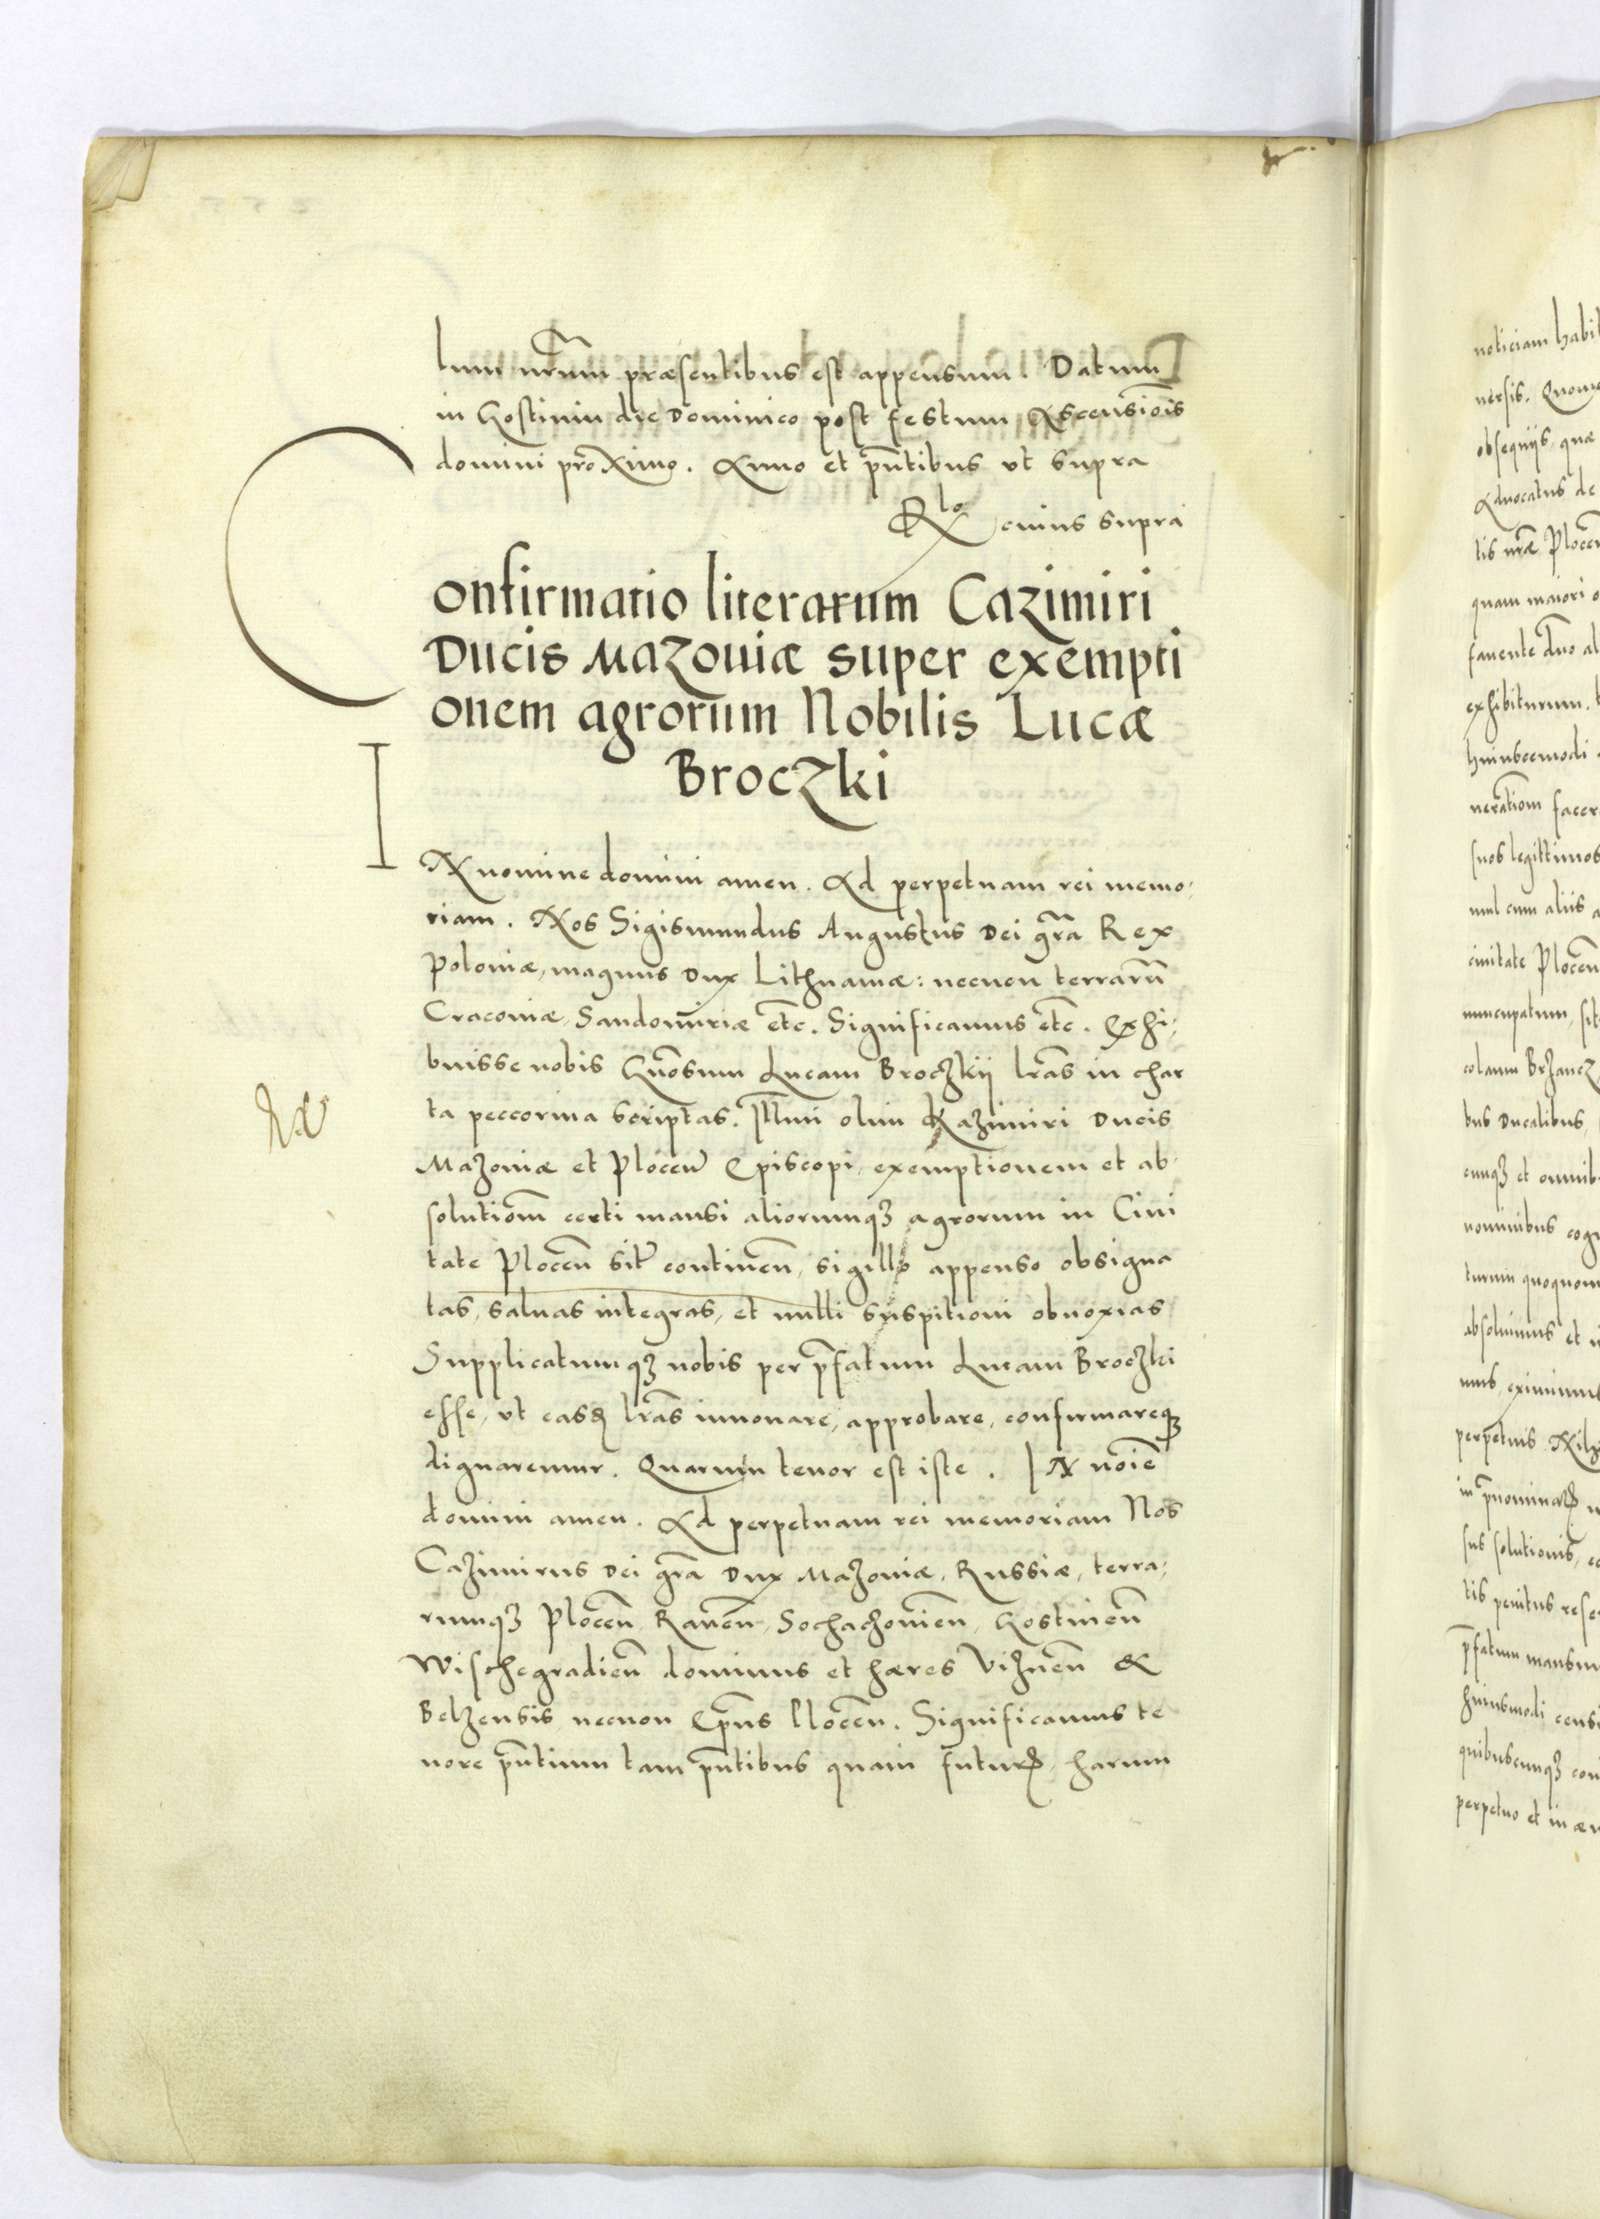 lum nr̃um præsentibus est appensum. Datum
in Gostinin die Dominico post festum Ascensiõis
domini proximo. Anno et pñtibus ut supra
Rlõ cuius supra
Confirmatio literarum Cazimiri
Ducis Mazouiæ super exempti
onem agrorum Nobilis Lucæ
Broczki
IN nomine domini amen. Ad perpetuam rei memo,
riam. Nos Sigismundus Augustus Dei grã Rex
Poloniæ, magnus Dux Lithuaniæ: necnon terrarũ
Cracouiæ, Sandomiriæ etc̃. Significamus etc̃. Exhi,
buisse nobis Gñosum Lucam Broczkij lr̃as in char
ta peccorina scriptas. Illmi olim Kazimiri Ducis
Mazouiæ et Plocen̄ Episcopi, exemptionem et ab,
solutiom̃ certi mansi aliorumqʒ agrorum in Ciui
tate Plocen̄ sit̃ continen̄, sigillo appenso obsigna
tas, saluas integras, et nulli suspitioni obnoxias
Supplicatumqʒ nobis per p̃fatum Lucam Broczki
esse, ut easd̃ lr̃as innouare, approbare, confirmareqʒ
dignaremur. Quarum tenor est iste. IN noĩe
domini amen. Ad perpetuam rei memoriam Nos
Cazimirus Dei grã Dux Mazouiæ, Russiæ, terra,
rumqʒ Plocen̄ Rauen̄, Sochaczouien̄, Gostinen̄
Wischegradien̄ dominus et hæres Viznen̄ &
Belzensis necnon Ep̃us Plocen̄. Significamus te
nore pñtium tam pñtibus quam futur̃, harum
noticiam habit
uersis. Quomo
obsequijs, quæ
Aduocatus de
tis nr̃æ Plocen̄
quam maiori o
fauente dño al
exhibiturum.
huiuscemodi
neratiom̃ facer
suos legittimos
mul cum aliis a
ciuitate Plocen̄
nuncupatum, sit
colaum Brzancz
bus Ducalibus,
cunqʒ et omnib
nominibus cog
tumm quoquom
absoluimus et
mus, eximimus
perpetuis Nil
in p̃nominat̃
sus solutionis, c
tis penitus rese
p̃fatum mansu
huiusmodi censi
quibuscunqʒ con
perpetuo et in æu